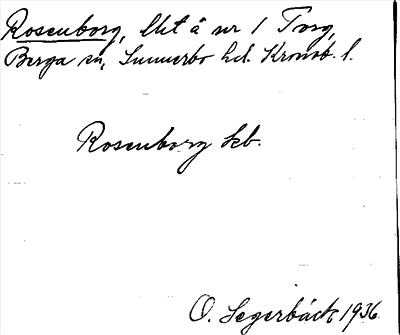 Rosenborg, lht å nr 1 Torg,
Berga sn, Sunnerbo hd. Kronob. l.
Rosenborg kb.
O. Segerbäck 1936